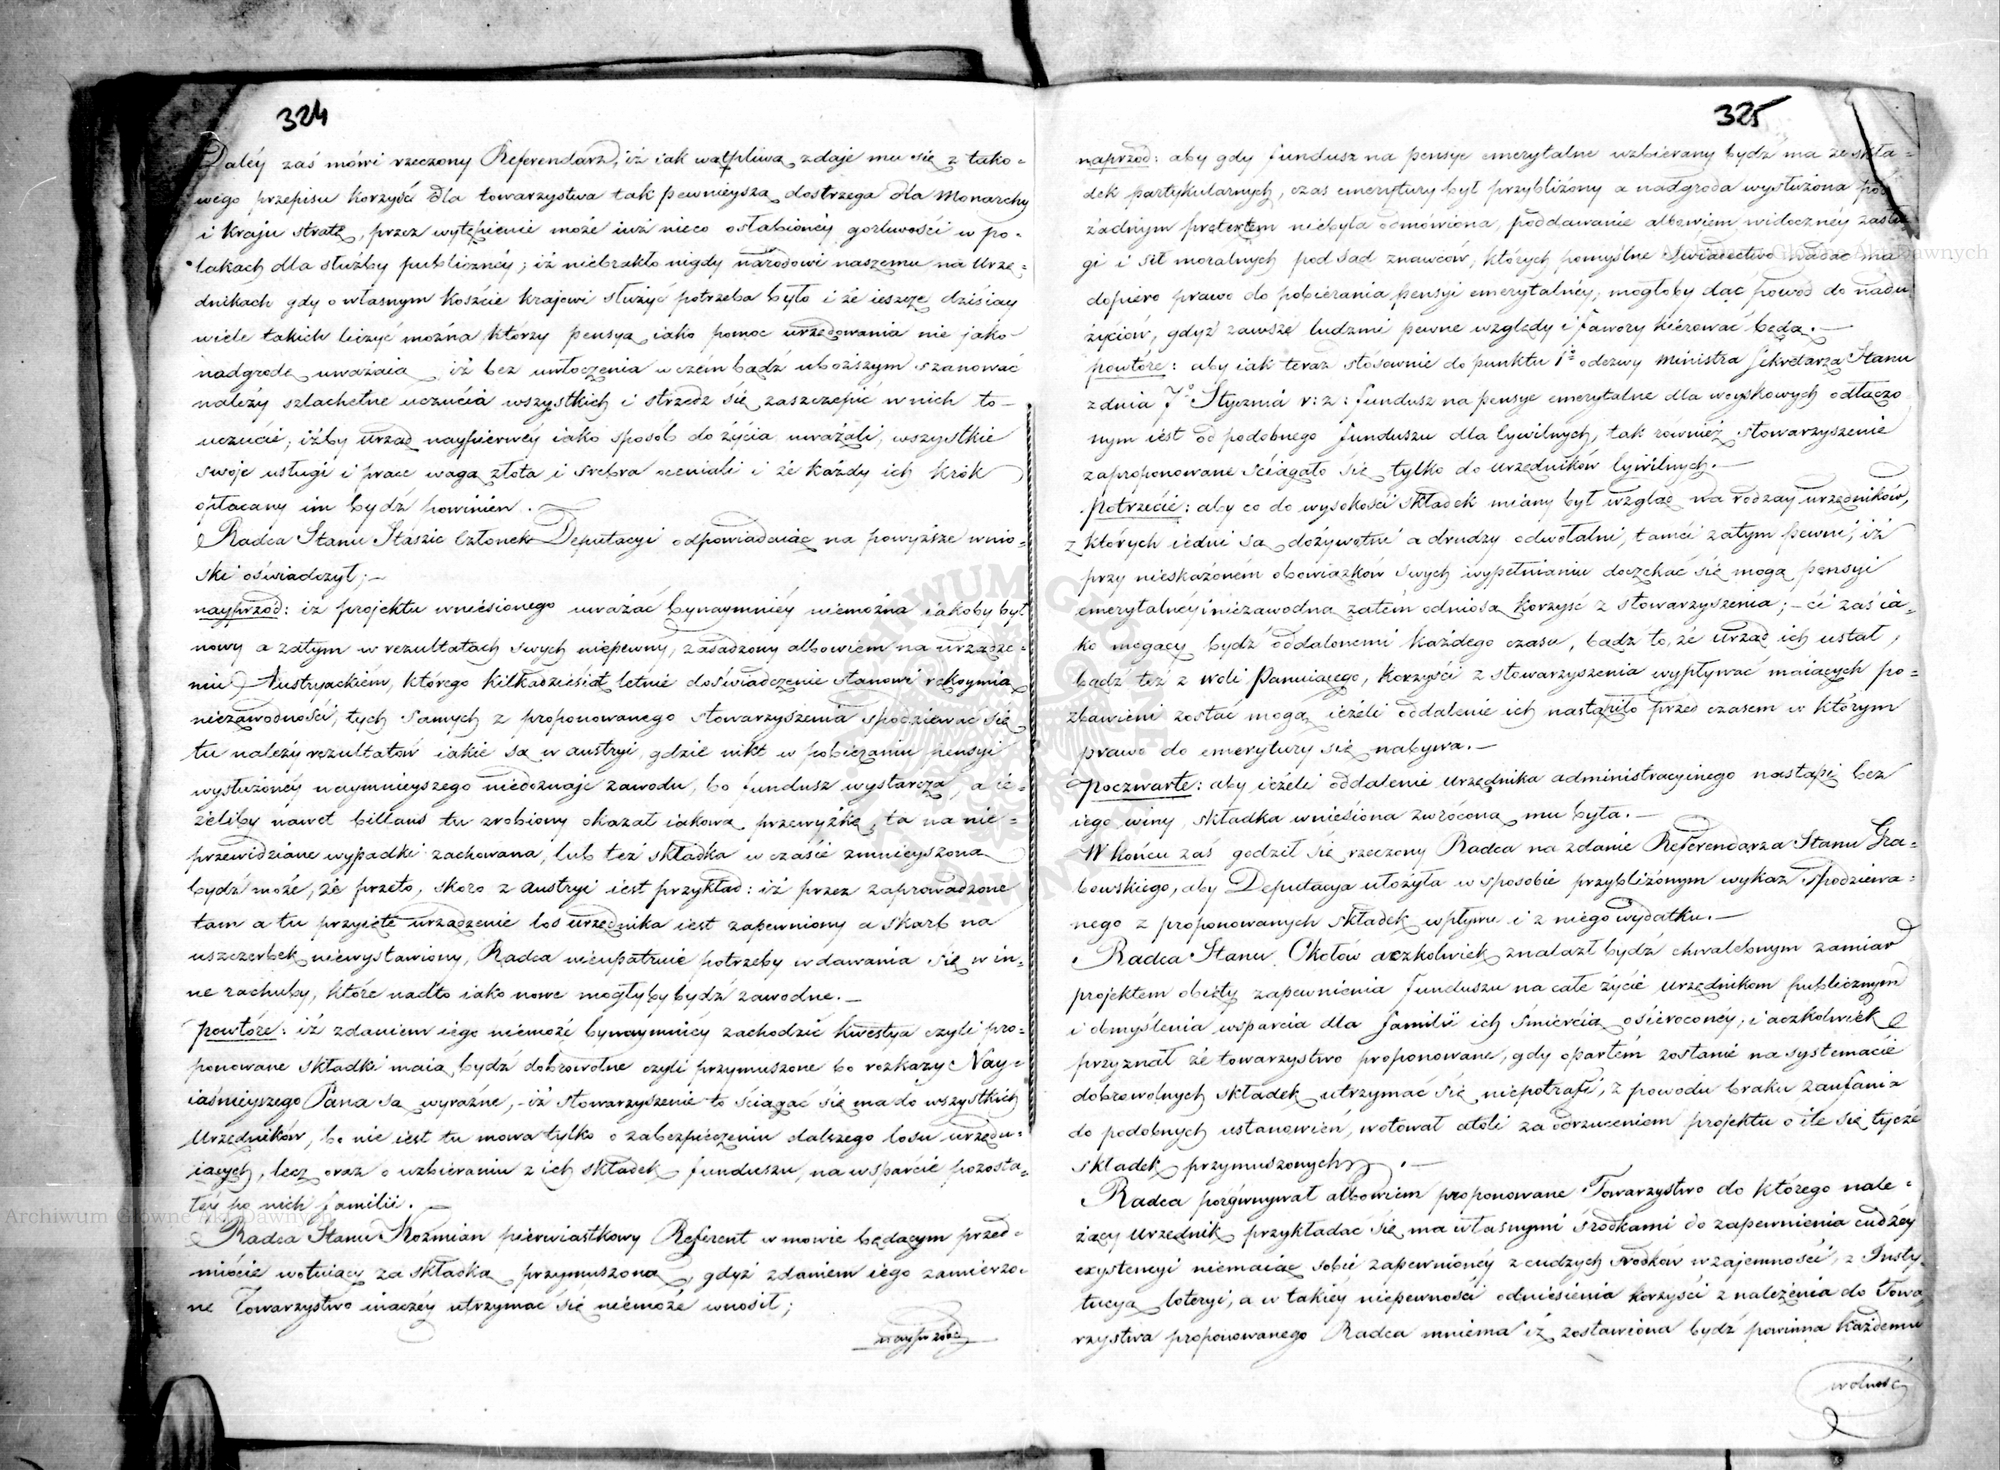 324
Daléy zaś mówi rzeczony Referendarz, iż iak wątpliwą zdaje mu się z tako-
wego przepisu korzyść dla towarzystwa tak pewnieyszą dostrzega dla Monarchy
i kraju stratę, przez wytępienie może iuż nieco osłabionéy gorliwości w po-
lakach dla służby publicznéy; iż niebrakło nigdy narodowi naszemu na Urzę-
dnikach gdy o własnym koszcie krajowi służyć potrzeba było i że ieszcze dzisiay
wiele takich liczyć można, którzy pensyą iako pomoc urzędowania nie jako
nadgrodę uważaią, iż bez uwłoczenia w czém bądź uboższym szanować
należy szlachetne uczucia wszystkich i strzedz się zaszczepić w nich to
uczucie; iżby urząd naypierwéy iako sposób do życia uważali, wszystkie
swoje usługi i prace wagą złota i srebra oceniali i że każdy ich krok
opłacany im bydź powinien.
Radca Stanu Stászic Członek Deputacyi odpowiadaiąc na powyższe wnio-
ski oświadczył;—
nayprzód: iż projektu wniesionego uważać bynaymniéy niemożna iakoby był
nowy a zatym w rezultatach swych niepewny, zasadzony albowiem na urządze-
niu Austryackiém, którego kilkadziesiąt letnie doświadczenie stanowi rękoymią
niezawodności, tych samych z proponowanego stowarzyszenia spodziewać się
tu należy rezultatów iakie są w austryi, gdzie nikt w pobieraniu pensyi
wysłużonéy naymnieyszego niedoznaje zawodu, bo fundusz wystarcza, a ie-
żeliby nawet billans tu zrobiony okazał iakową przewyżkę, ta na nie-
przewidziane wypadki zachowana, lub też składka w czasie zmnieyszona
bydź może, że przeto, skoro z austryi iest przykład: iż przez zaprowadzone
tam a tu przyięte urządzenie los urzędnika iest zapewniony a skarb na
uszczerbek niewystawiony, Radca nieupatruie potrzeby wdawania się w in-
ne rachuby, które nadto iako nowe mogłyby bydź zawodne.—
powtóre: iż zdaniem iego niemoże bynaymniéy zachodzić kwestya czyli pro-
ponowane składki maią bydź dobrowolne czyli przymuszone bo rozkazy Nay-
iaśnieyszego Pana są wyraźne,- iż stowarzyszenie to ściągać się ma do wszystkich
Urzędników, bo nie iest tu mowa tylko o zabezpieczeniu dalszego losu urzędu-
iących, lecz oraz o uzbieraniu z ich składek funduszu, na wsparcie pozosta-
łéy po nich familii.
Radca Stanu Kozmian pierwiastkowy Referent w mowie będącym przed-
miocie wotuiąc za składką przymuszoną, gdyż zdaniem iego zamierzo-
ne Towarzystwo inaczéy utrzymać się niemoże wnosił;
nayprzód
325
naprzód: aby gdy fundusz na pensye emerytalne uzbierany bydź ma ze skła-
dek partykularnych, czas emerytury był przybliżony a nadgroda wysłużona pod
żadnym pretextem niebyła odmówiona, poddawanie albowiem widocznéy zasłu-
gi i sił moralnych pod sąd znawców, których pomyślne świadectwo nadać ma
dopiero prawo do pobierania pensyi emerytalnéy, mogłoby dać powód do nadu-
życiów, gdyż zawsze ludzmi pewne względy i fawory kierować będą.—
powtóre: aby iak teraz stosownie do punktu 1º odezwy Ministra Sekretarza Stanu
z dnia 7º Stycznia r: z: fundusz na pensye emerytalne dla woyskowych odłączo-
nym iest od podobnego funduszu dla Cywilnych, tak rownież stowarzyszenie
zaproponowane ściągało się tylko do urzędników Cywilnych.—
potrzecie: aby co do wysokości składek miany był wzgląd na rodzay urzędników,
z których iedni są dożywotni a drudzy odwołalni, tamci zatym pewni, iż
przy nieskażoném obowiązków swych wypełnianiu doczekać się mogą pensyi
emerytalnéy i niezawodną zatém odniosą korzyść z stowarzyszenia;- ci zaś ia-
ko mogący bydź oddalonemi każdego czasu, bądź to, że urząd ich ustał,
bądź też z woli Panuiącego, korzyści z stowarzyszenia wypływać maiących po-
zbawieni zostać mogą ieżeli oddalenie ich nastąpiło przed czasem w którym
prawo do emerytury się nabywa.—
poczwarte: aby ieżeli oddalenie urzędnika administracyinego nastąpi bez
iego winy, składka wniesiona zwróconą mu była.—
W końcu zaś godził się rzeczony Radca na zdanie Referendarza Stanu Gra-
bowskiego, aby Deputacya ułożyła w sposobie przybliżonym wykaz spodziewa-
nego z proponowanych składek wpływu i z niego wydatku.—
Radca Stanu Okołów aczkolwiek znalazł bydź chwalebnym zamiar
projektem obięty zapewnienia funduszu na całe życie urzędnikom publicznym
i obmyślenia wsparcia dla familii ich śmiercią osieroconey, i aczkolwiek
przyznał że towarzystwo proponowane, gdy opartém zostanie na systemacie
dobrowolnych składek utrzymać się niepotrafi, z powodu braku zaufania
do podobnych ustanowień, wotował atoli za odrzuceniem projektu o ile się tycze
składek przymuszonych.—
Radca porównywał albowiem proponowane Towarzystwo do którego nale-
żący urzędnik przykładać się ma własnymi środkami do zapewnienia cudzéy
exystencyi niemaiąc sobie zapewnionéy z cudzych środków wzajemności, z Insty-
tucyą loteryi, a w takiéy niepewności odniesienia korzyści z należenia do Towa-
rzystwa proponowanego Radca mniema iż zostawiona bydź powinna każdemu
wolność
Archiwum Główne Akt Dawnych
Archiwum Główne Akt Dawnych